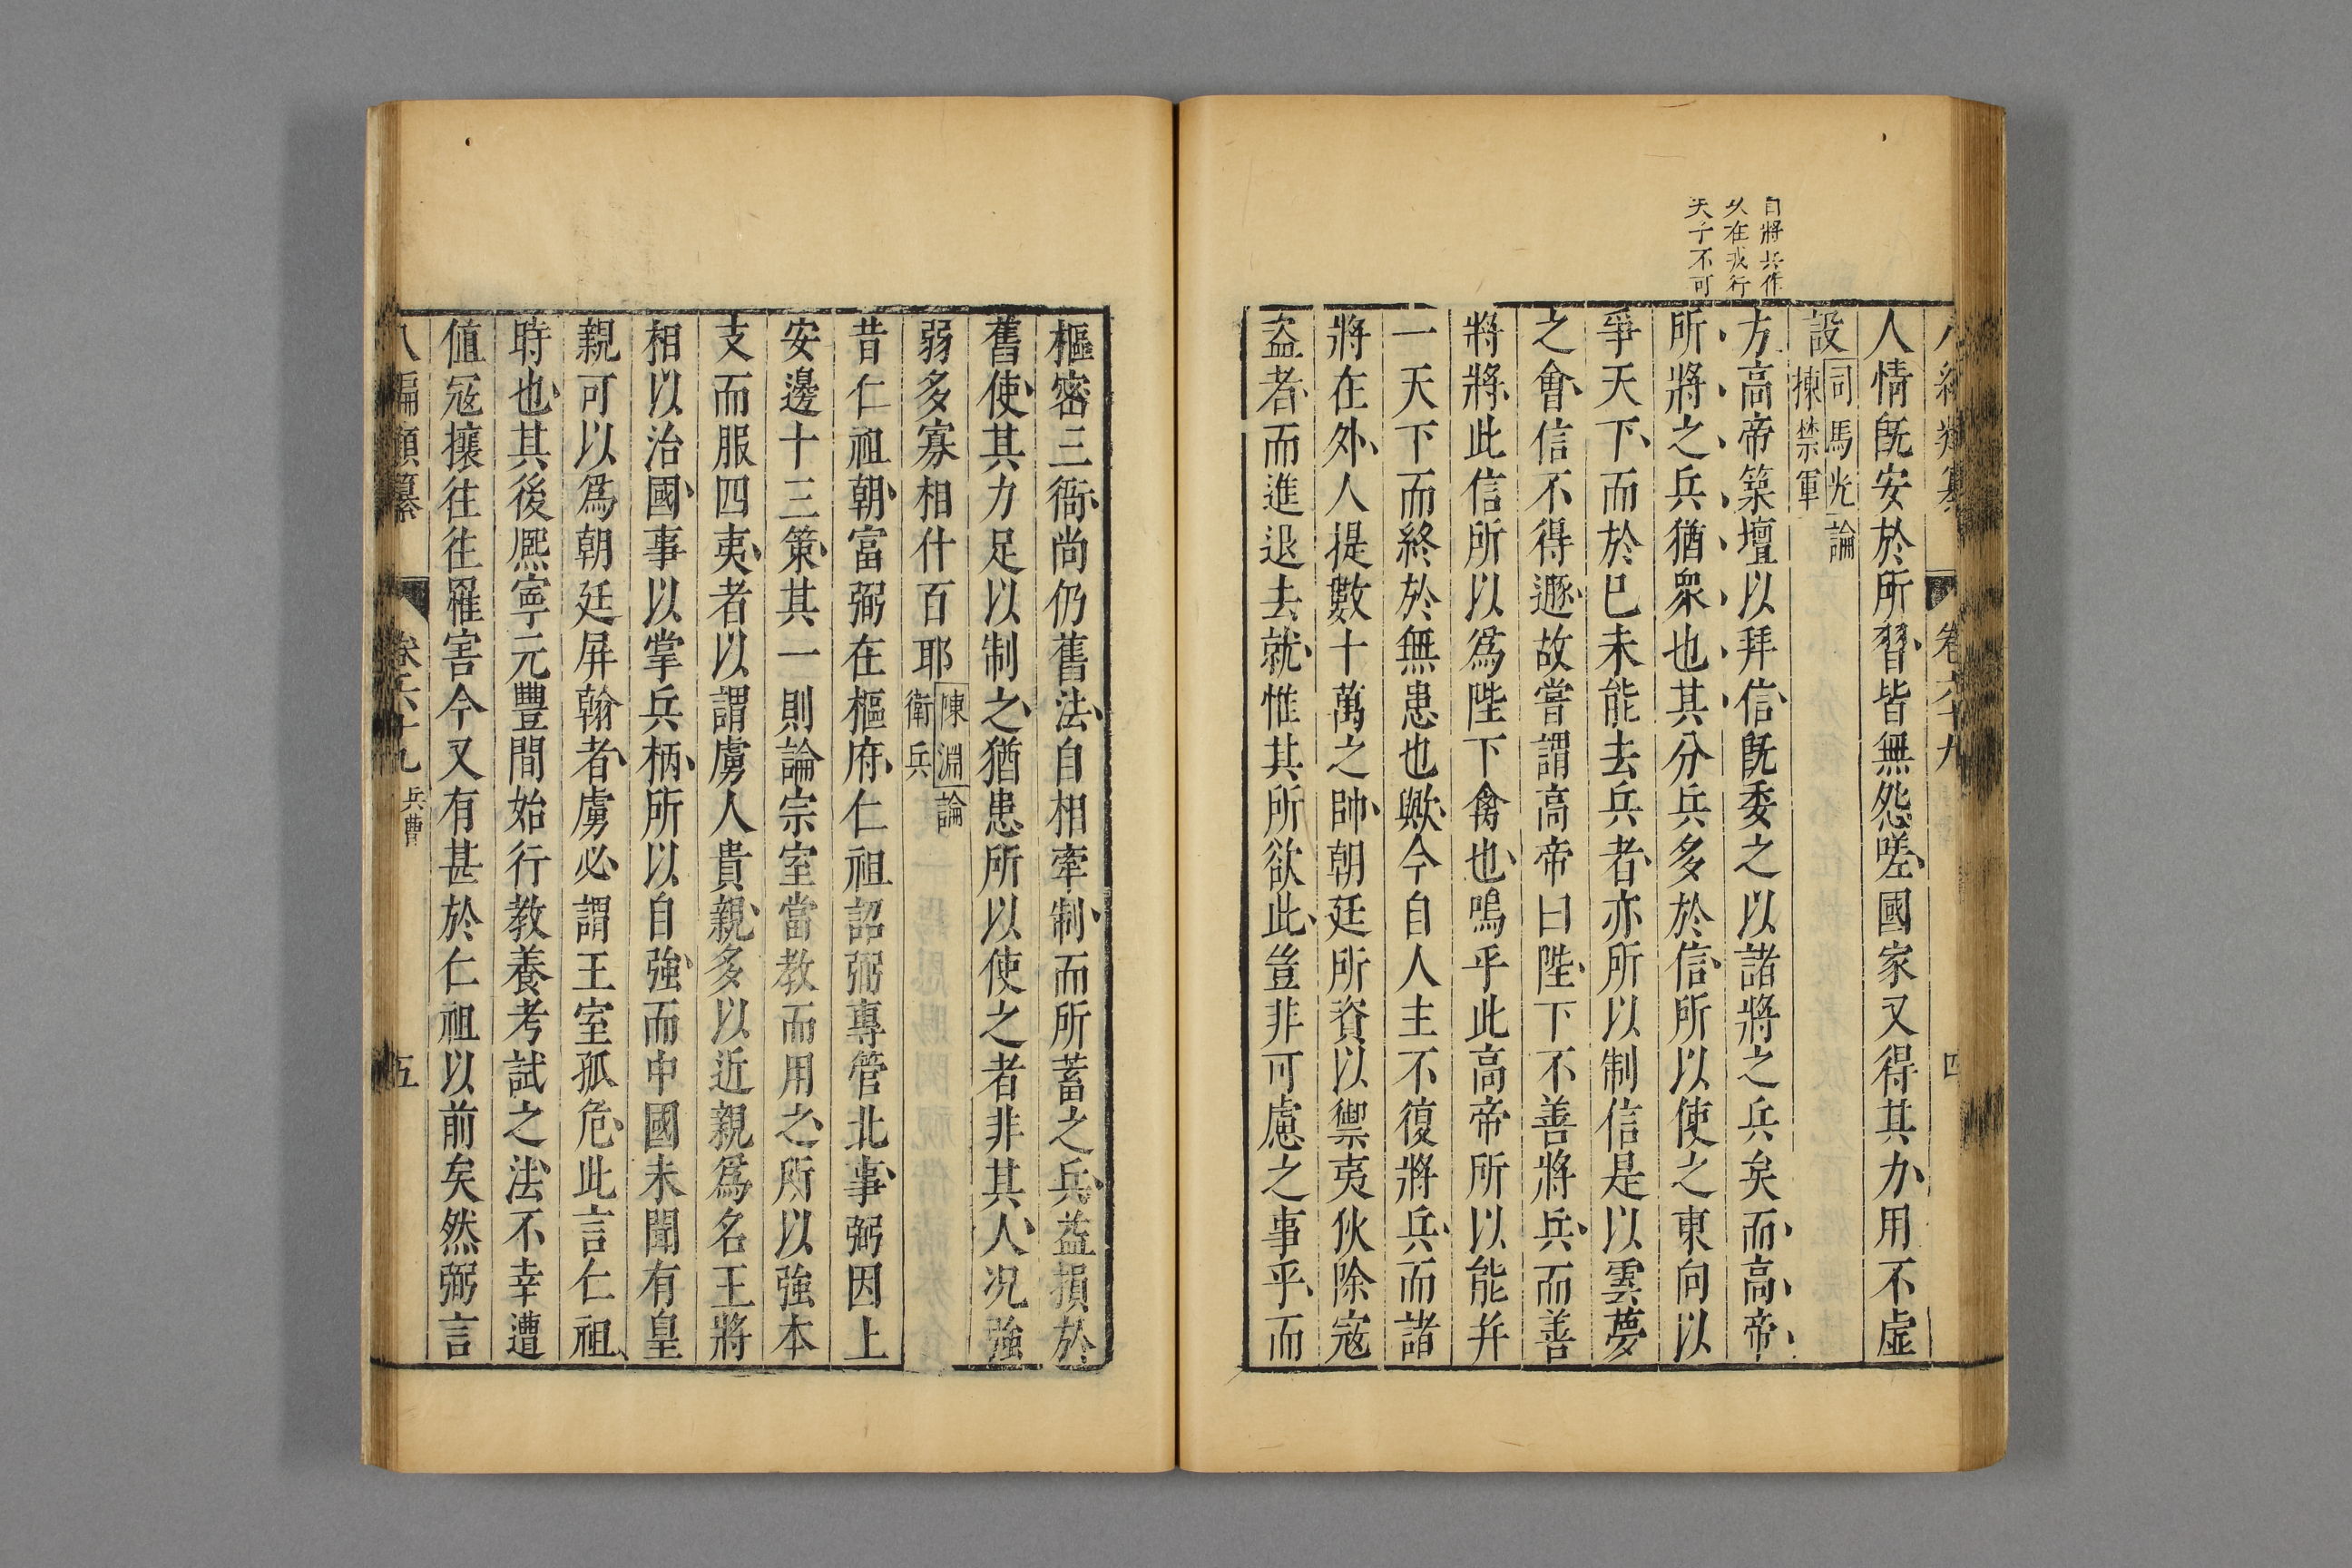 自將兵作
以在戎行
天子不可
八編類纂 卷六十九 四
人情旣安於所習皆無怨嗟國家又得其力用不虛
設司馬光論
揀禁軍
方高帝築壇以拜信旣委之以諸將之兵矣而高帝
所將之兵猶衆也其分兵多於信所以使之東向以
爭天下而於已未能去兵者亦所以制信是以雲夢
之會信不得遯故嘗謂高帝曰陛下不善將兵而善
將將此信所以爲陛下禽也嗚乎此高帝所以能幷
一天下而終於無患也歟今自人主不復將兵而諸
將在外人提數十萬之帥朝廷所資以禦夷狄除寇
盗者而進退去就惟其所欲此豈非可慮之事乎而
樞密三衙尚仍舊法自相牽制而所蓄之兵益損於
舊使其力足以制之猶患所以使之者非其人况強
弱多寡相什百耶陳淵論
衛兵
昔仁祖朝富弼在樞府仁祖詔弼專管北事弼因上
安邊十三策其一則論宗室當教而用之所以強本
支而服四夷者以謂虜人貴親多以近親爲名王將
相以治國事以掌兵柄所以自強而中國未聞有皇
親可以爲朝廷屏翰者虜必謂王室孤危此言仁祖
時也其後熈寧元豐間始行教養考試之法不幸遭
値冦攘往往罹害今又有甚於仁祖以前矣然弼言
八編類纂 卷六十九 兵曹 五